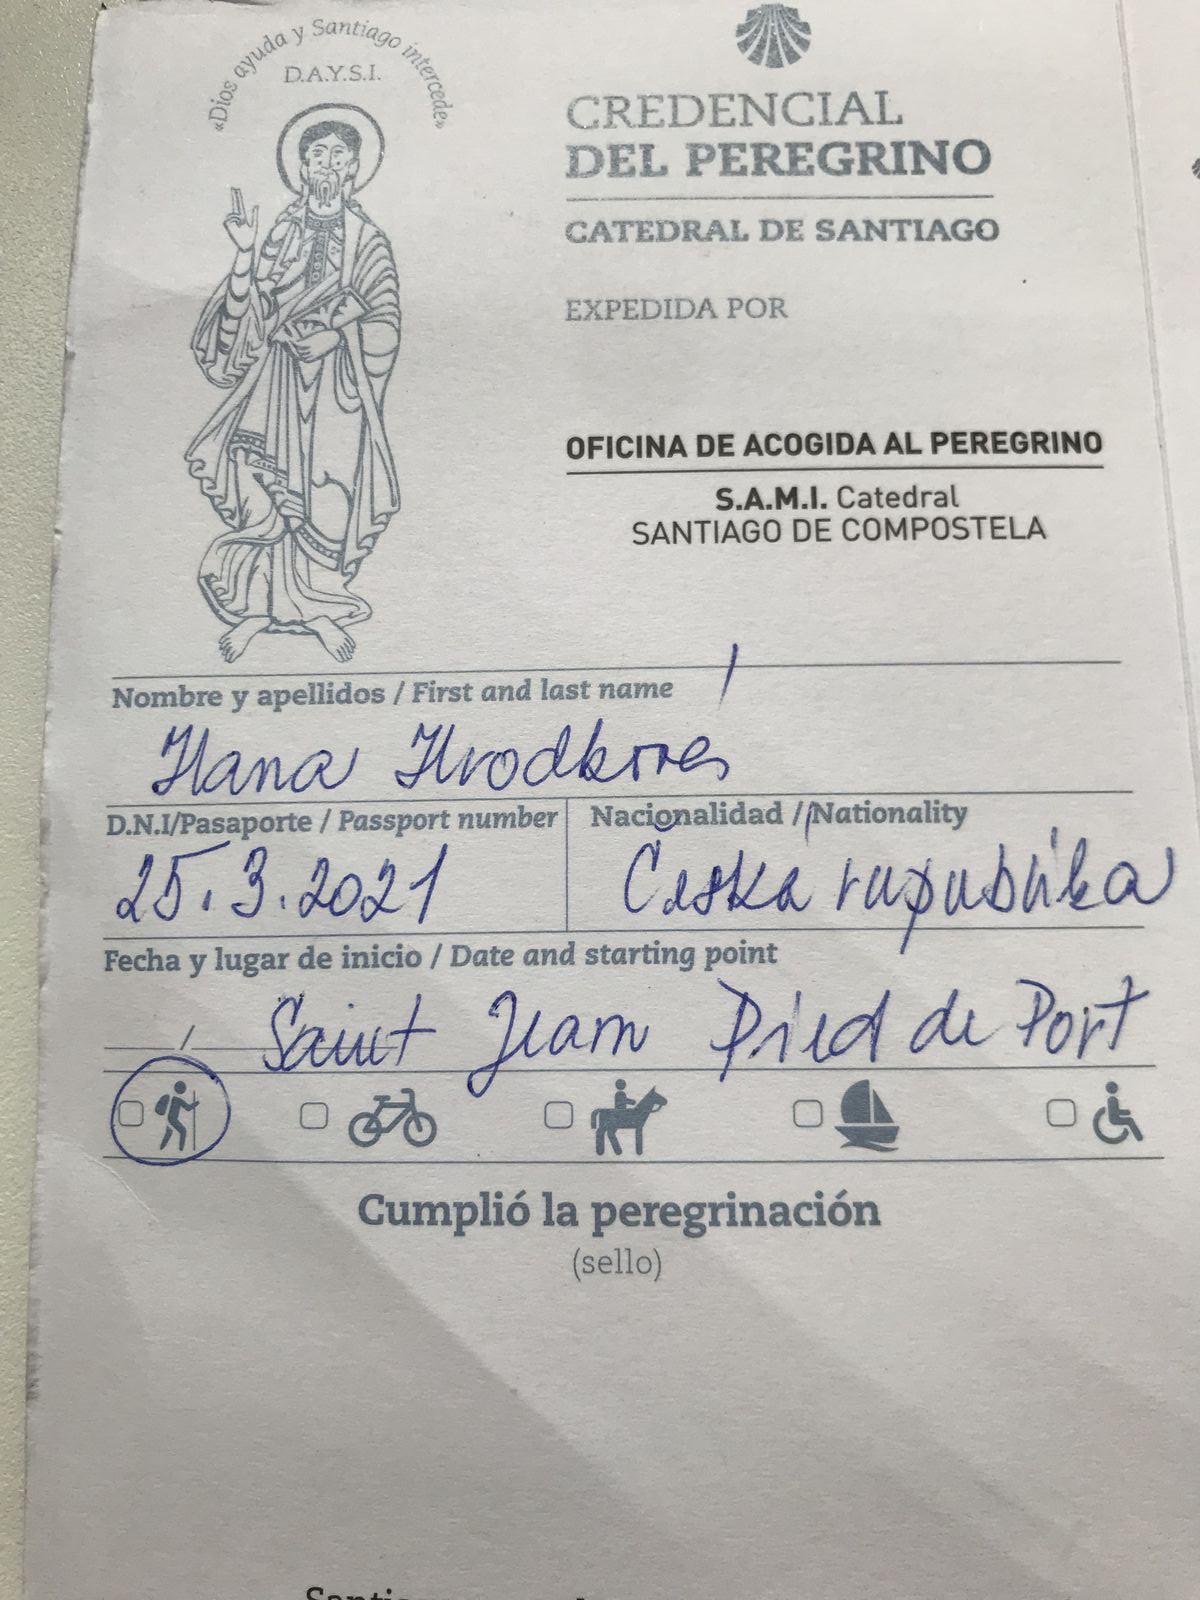 «Dios ayuda y Santiago intercede»
D.A.Y.S.I.
CREDENCIAL
DEL PEREGRINO
CATEDRAL DE SANTIAGO
EXPEDIDA POR
OFICINA DE ACOGIDA AL PEREGRINO
S.A.M.I. Catedral
SANTIAGO DE COMPOSTELA
Nombre y apellidos / First and last name
Hana
D.N.I/Pasaporte / Passport number
Nacionalidad / Nationality
25.3.2021
Česká republika
Fecha y lugar de inicio / Date and starting point
Saint Jean Pied de Port
Cumplió la peregrinación
(sello)